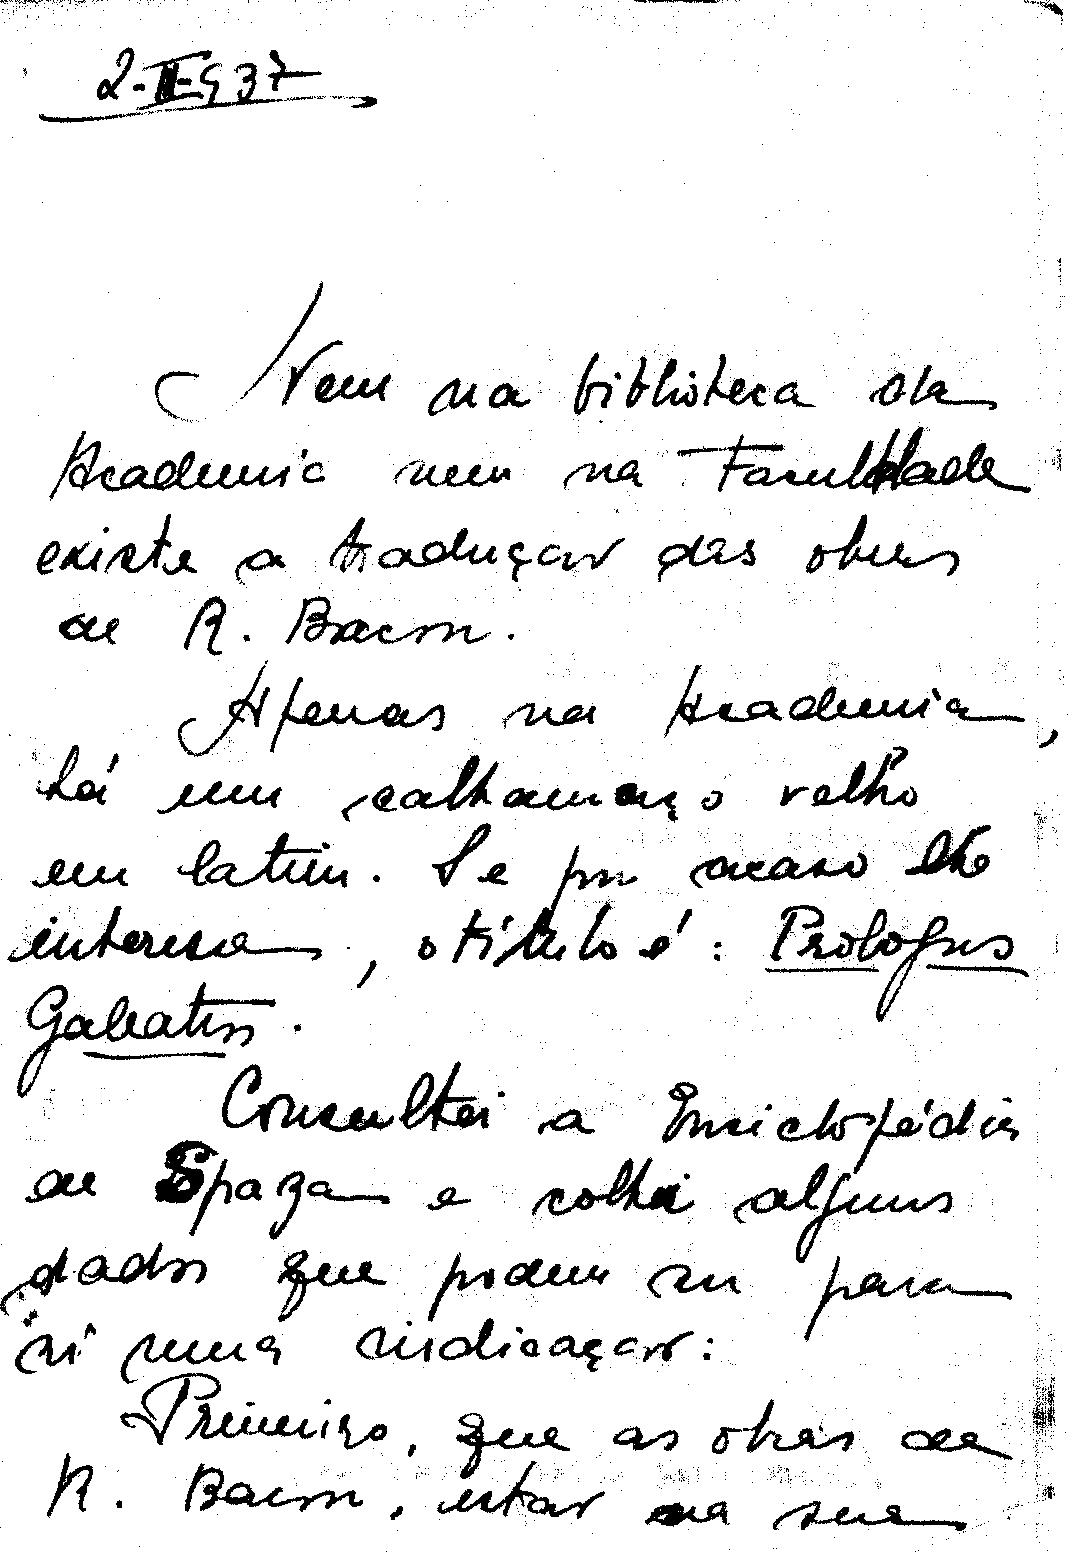 2-II-937
Nem na biblioteca da
Academia nem na Faculdade
existe a traduçao das obras
de R. Bacon.
Apenas na Academia,
há um calhamaço velho
em latim. Se por acaso lhe
interessa, o título é: Prologus
Galeatus.
Consultei a Enciclopédia
de Spaza e colhi alguns
dados que podem ser para
si uma indicaçao:
Primeiro, que as obras de
R. Bacon, estao na sua